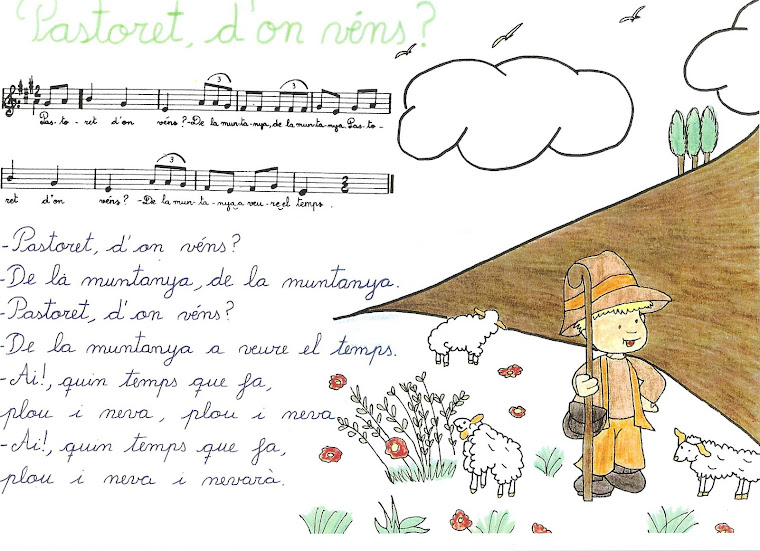 Pastoret, d'on véns?
3 3
Pas-to-ret d'on véns?-De la mun-ta-nya, de la mun-ta-nya. Pas-to-
3
ret d'on véns? -De la mun-ta-nya a veu-re el temps.
-Pastoret, d'on véns?
-De la muntanya, de la muntanya.
-Pastoret, d'on véns?
-De la muntanya a veure el temps.
-Ai!, quin temps que fa,
plou i neva, plou i neva
-Ai!, quin temps que fa,
plou i neva i nevarà.